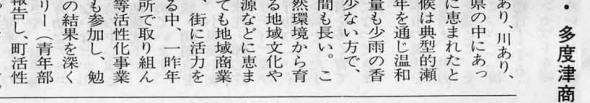 ・多度津商
あり、川あり、
県の中にあっ
に恵まれたと
候は典型的瀬
年を通じ温和
量も少雨の香
少ない方で、
間も長い。こ
然環境から育
る地域文化や
源などに恵ま
ても地域商業
、街に活力を
る中、一昨年
所で取り組ん
等活性化事業
も参加し、勉
の結果を深く
リー（青年部
報告し、町活性